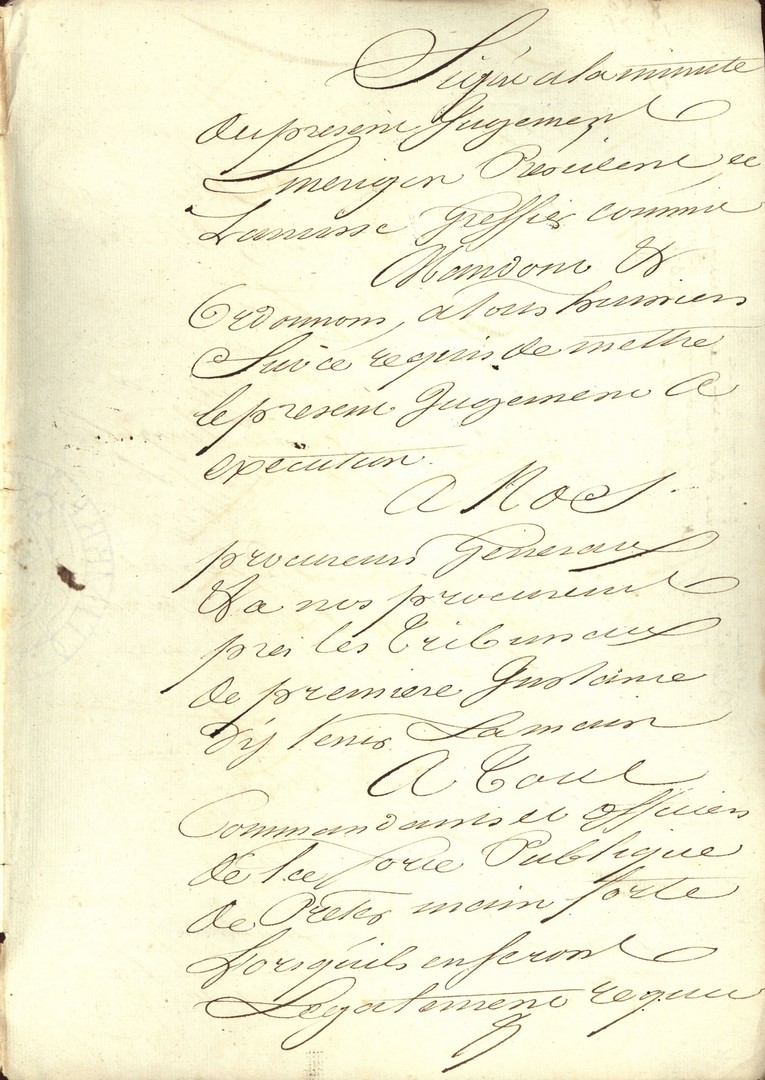 Signé a la minute
du present Jugement
Limerigon President et
Lamisse Greffier commis
Mandons &
Ordonnons, a tous huissiers
Sur ce requis de mettre
le present Jugement a
execution.
A Nos
procureurs Generaux
& a nos procureurs
pres les Tribunaux
de premiere Instance
d'y tenir La main
A Tous
Commandants et officiers
de la force Publique
de Preter main forte
Lorsquils en seront
Legalement requis